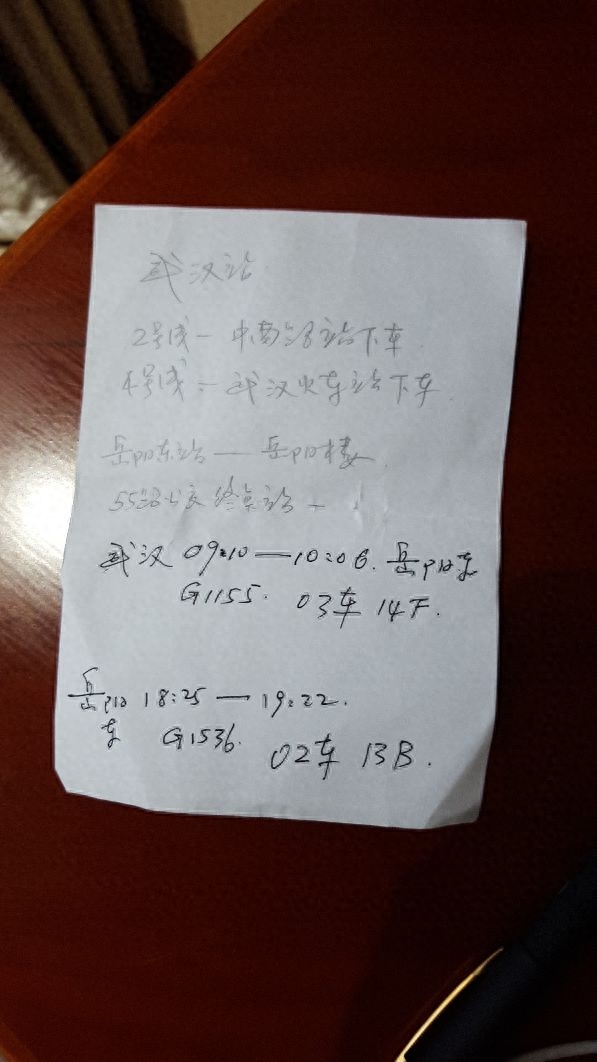 武汉站
2号线一中南路站下车
4号线一武汉火车站下车
岳阳东站——岳阳楼
55路公交终点站
武汉 09:10——10:06. 岳阳东
G1155. 03车 14F.
岳阳东 18:25 — 19:22.
G1536. 02车 13B.